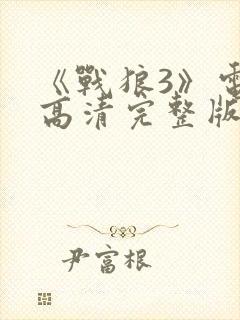 《戰狼3》電
高清完整版
尹富根